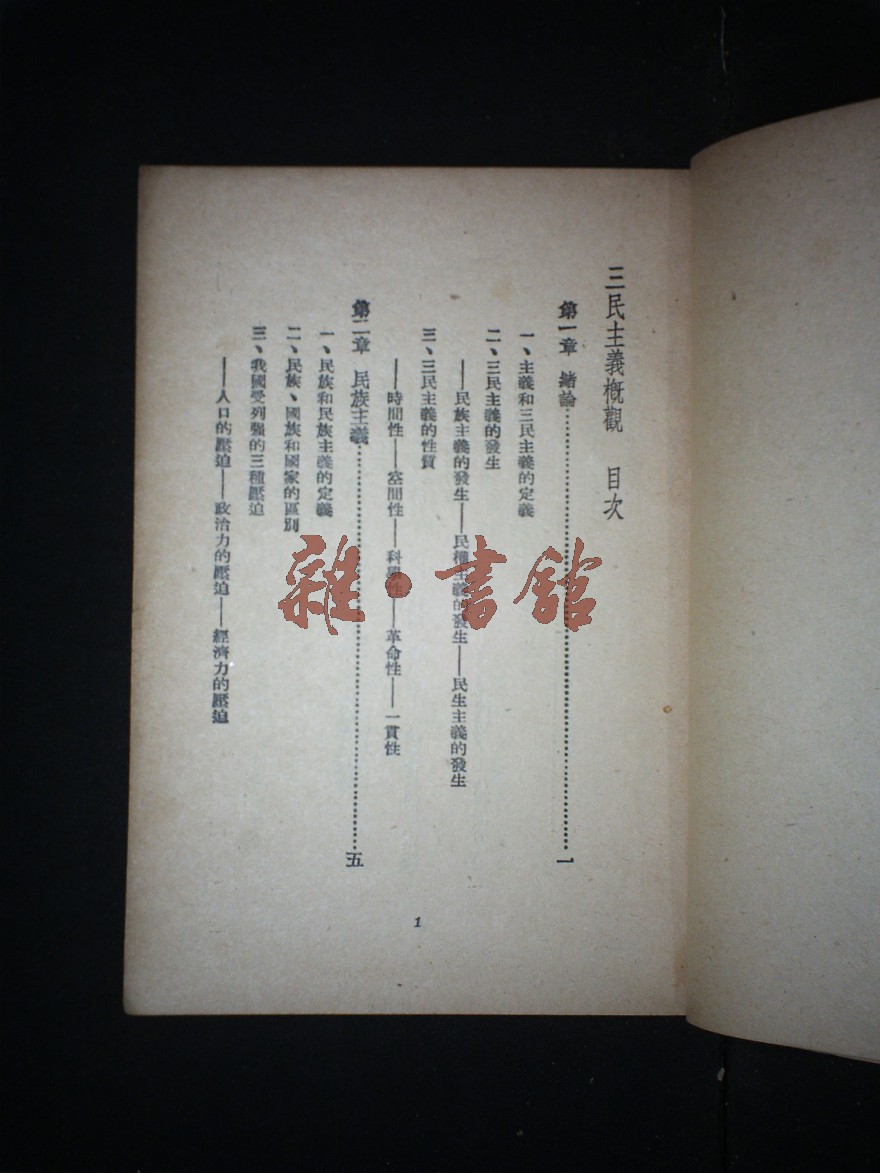 三民主義概觀 目次
第一章 緒論 一
一、主義和三民主義的定義
二、三民主義的發生
——民族主義的發生——民權主義的發生——民生主義的發生
三、三民主義的性質
——時間性——空間性——科學性——革命性——一貫性
第二章 民族主義 五
一、民族和民族主義的定義
二、民族、國族和國家的區別
三、我國受列强的三種壓迫
——人口的壓迫——政治力的壓迫——經濟力的壓迫
1
雜·書館